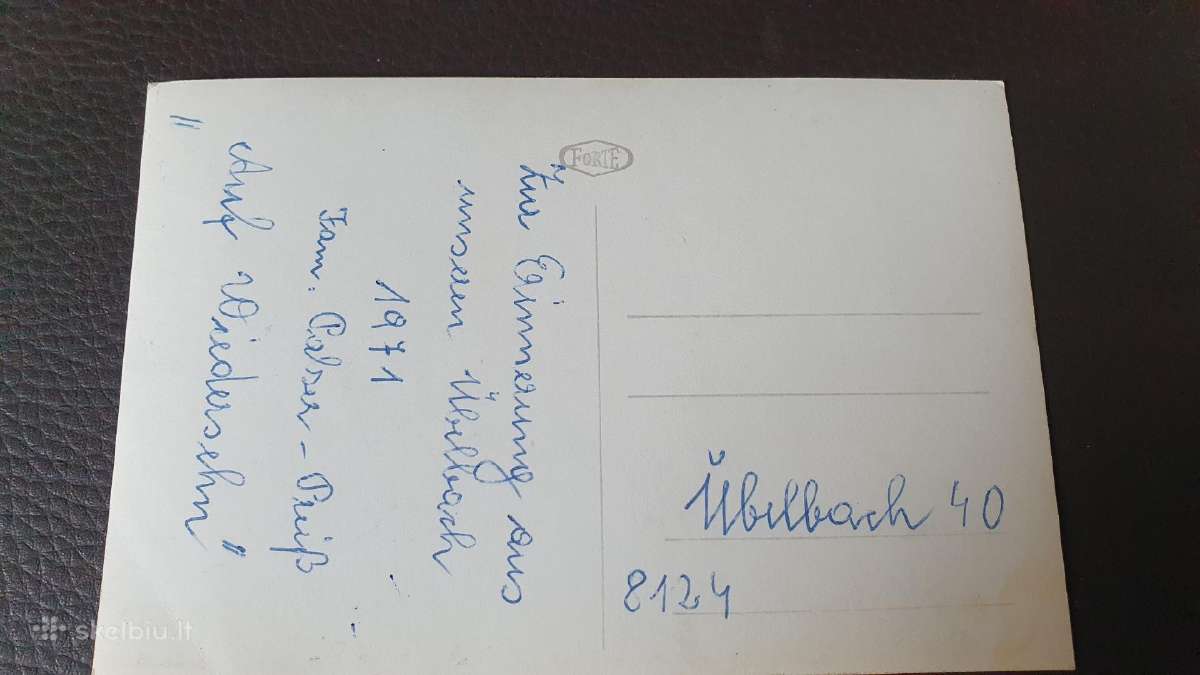 FORTE
Zur Erinnerung aus
unseren Übelbach
1971
Fam. Pelzer - Preiß
"Auf Wiedersehn"
Übelbach 40
8124
skelbiu.lt